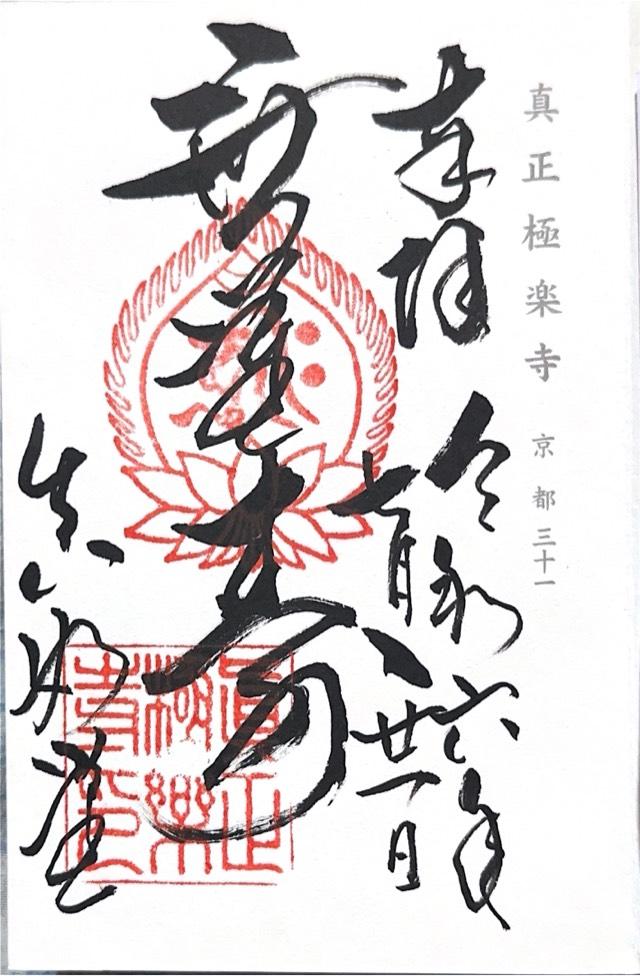 真正極楽寺 京都三十一
奉拝
令和六年
七月廿一日
無量寿
真如堂
眞正極樂寺印